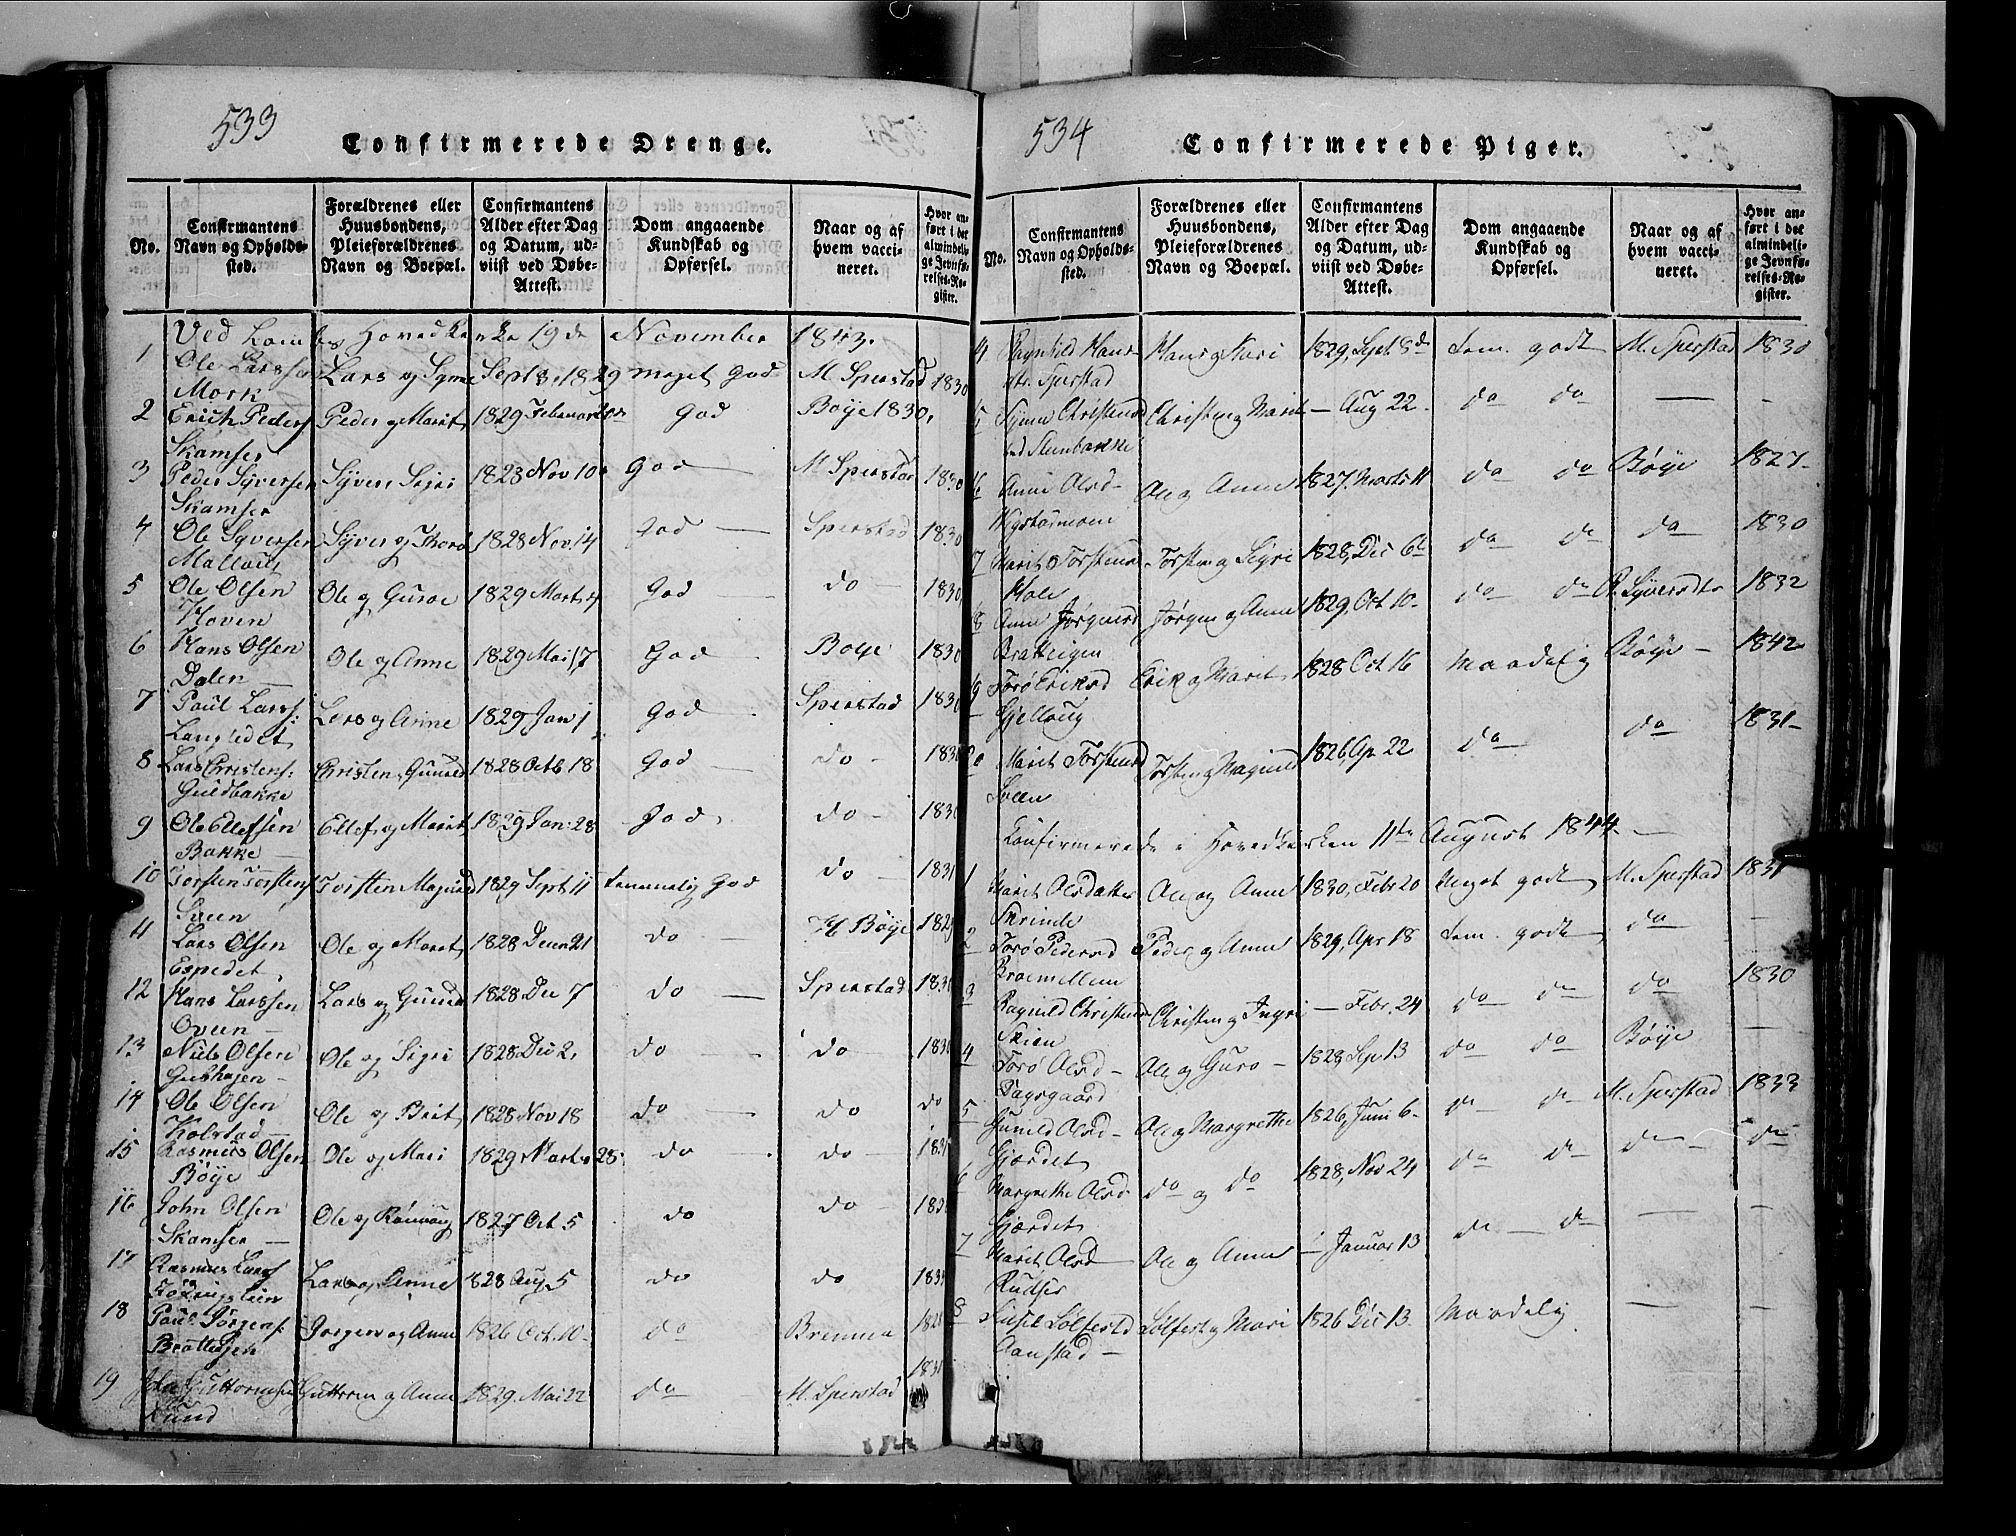 533
Confirmerede Drenge.
No.
Confirmantens Navn og Opholdssted.
Forældrenes eller Huusbondens, Pleieforældrenes Navn og Boepæl.
Confirmantens Alder efter Dag og Datum, udviist ved Døbe-Attest.
Dom angaaende Kundskab og Opførsel.
Naar og af hvem vaccineret.
Hvor anført i det almindelige Jevnførelses-Register.
Ved Loms Hovedkerke 19de November 1843.
1 Ole Larssen Lars og Syne Sept 8. 1829 meget God M Sperstad 1830
Mork
2 Erich Peders Peder og Marit 1829 Februar God Bøye 1830,
Skamser
3 Peder Syversen Syver Sigri 1828 Nov 10 God M Sperstad 1830
Skamser
4 Ole Syversen Syver og Thorø 1828 Nov. 14 God — Sperstad 1830
5 Ole Olsen Ole og Guroe 1829 Mart. 4 God — do — 1830
Hoven
6 Hans Olsen Ole og Anne 1829 Mai 17 God — Boye 1830
Dalen —
7 Paul Larss: Lars og Anne 1829 Jan 1 God — Sperstad 1830
8 Lars Christens: Christen, 1828 Octb 18 God — do —
Guldbakke
9 Ole Ellefsen Ellef og Marit 1829 Jan: 28 God. do — 1830
Bakke —
10 Torsten Torstens Torsten Magnild 1829 Sept 11 temmelig God do — 1831
Sveen
11 Lars Olsen Ole og Maret 1828 Decm 21 do — H Bøye 1829
Espedet
12 Hans Larssen Lars og Gunild 1828 Dec 7 do — Sperstad
Oveen —
13 Niels Olsen Ole og Sigri 1828 Dec 2, do do — 1830
14 Ole Olsen Ole og Brit 1828 Nov 18 do — do do
Kolstad —
15 Rasmus Olsen Ole og Mari 1829 Mart. 28. do . do —
Bøye
16 John Olsen Ole og Rønnaug 1827 Oct 5 . do do
Skamser —
17 Rasmus Larss Lars og Anne 1828 Aug 5 do do
18 Paul Jørgens. Jorgen og Anne 1826 Oct. 10 — do Bremna
19 Guttormsen Guttorm og Anne 1829. Mai 22 do — M. Sperstad
Sund
534
Confirmerede Piger.
No.
Confirmantens Navn og Opholdssted.
Forældrenes eller Huusbondens, Pleieforældrenes Navn og Boepæl.
Confirmantens Alder efter Dag og Datum, udviist ved Døbe-Attest.
Dom angaaende Kundskab og Opførsel.
Naar og af hvem vaccineret.
Hvor anført i det almindelige Jevnførelses-Register.
4 Ragnhild Hans- Hans og Mari 1829, Sept. 8de tem. godt M. Sperstad 1830
dtr. Sperstad
5 Synne Christensd Christen og Marit — Aug 22 — do do — —
6 Anne Olsd — Ole og Anne 1827. Marts 11 do do Bøye 1827 —
7 Marit Torstensd Torsten og Sigri 1828, Dec 6te do do do 1830
8 Anne Jørgensd Jørgen og Anne 1829, Oct 10 — do do 1832
Bratteigen
9 Torø Eriksd Erik og Marit 1828 Oct 16 Maadelig Bøye — 1842
Gjelloug
Marit Torstensd Torsten og Magnild 1826, Apr 22 do — do 1831 —
Sveen
Confirmerede i Hovedkerken 11te August 1844 —
1 Marit Olsdatter Ole og Anne 1830, Febr 20 Meget godt M. Sperstad 1831
Skrinde
2 Torø Pedersd Peder og Anne 1829, Apr 18 tem. godt do —
3 Ragnild Christensd Christen og Ingri — Febr. 24 do — do do 1830
Skien
4 Torø Olsd — Ole og Guro — 1828, Sep 13 do do Bøye —
Dagsgaard
5 Gunild Olsd — Ole og Margrethe 1826, Juni 6 — do — do M. Sperstad 1833
Gjærdet
6 Margrethe Olsd. do og do 1828, Nov 24 do do do do
Gjærdet
7 Marit Olsd Ole og Anne — Januar 13 do — do — —
Rudser
8 Sølfestd Sølfest og Mari 1826 Dec 13 — Maadelig — —
Aanstad —